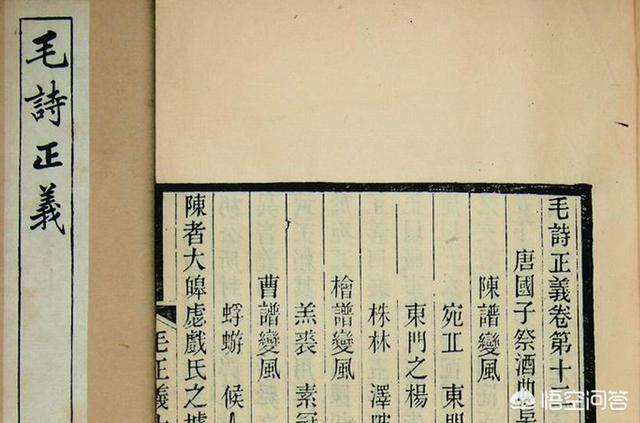 毛詩正義
毛詩正義卷第十
唐國子祭酒曲阜
陳譜變風
宛丘 東門
東門之楊
株林 澤陂
檜譜變風
羔裘 素冠
曹譜變風
蜉蝣 候人
陳者大皞虙戲氏之墟
毛正義
悟空问答